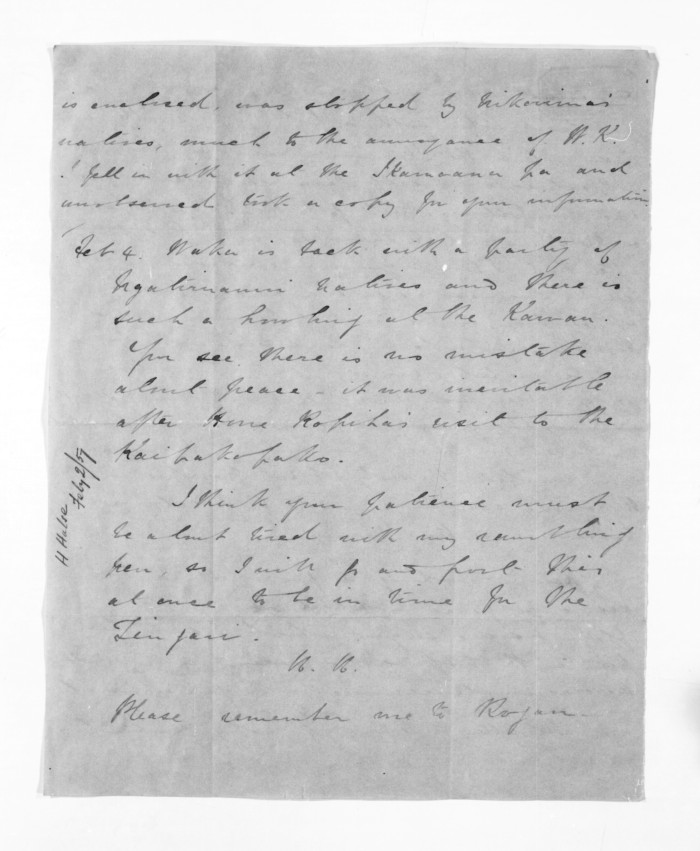 is enclosed, was stopped by Nikorima's
natives, much to the annoyance of W. K.
I fell in with it at the Ikamoana pa and
unobserved took a copy for your information.
Feb 4. Waka is back with a party of
Ngatiruanui natives and there is
such a howling at the Kawau.
You see there is no mistake
about peace - it was inevitable
after Hone Ropiha's visit to the
Kaipakopako.
I think your patience must
be about tired with my rambling
pen, so I will go and post this
at once to be in time for the
Zingari.
H. H.
Please remember me to Rogan.
H Halse
Feby 2/57